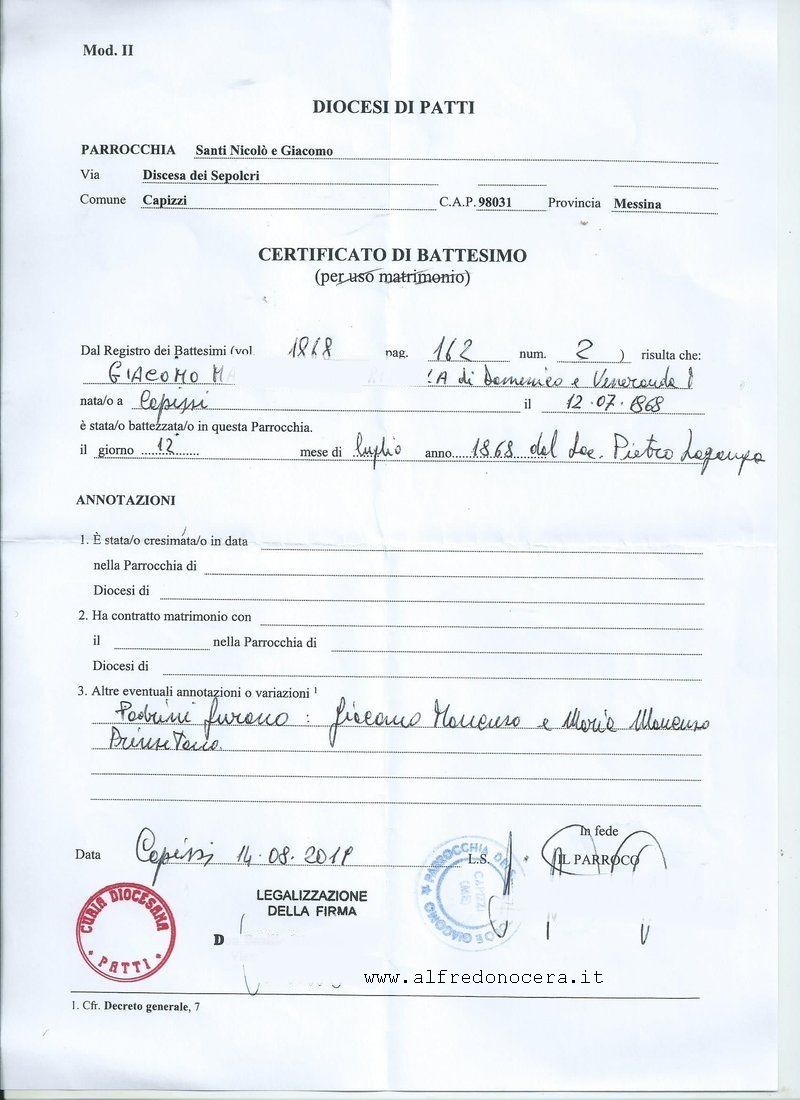 Mod. II
DIOCESI DI PATTI
PARROCCHIA Santi Nicolò e Giacomo
Via Discesa dei Sepolcri
Comune Capizzi C.A.P. 98031 Provincia Messina
CERTIFICATO DI BATTESIMO
(per uso matrimonio)
Dal Registro dei Battesimi (vol. 1868 pag. 162 num. 2 ) risulta che:
GIACOMO MA di Domenico e Veneranda
nata/o a Capizzi il 12.07.1868
è stata/o battezzata/o in questa Parrocchia.
il giorno 12 mese di luglio anno 1868 dal Sac. Pietro
ANNOTAZIONI
1. È stata/o cresimata/o in data
nella Parrocchia di
Diocesi di
2. Ha contratto matrimonio con
il nella Parrocchia di
Diocesi di
3. Altre eventuali annotazioni o variazioni 1
Padrini furono: Giacomo Mancuso e Maria Mancuso
Data Capizzi 14.08.2018 L.S. In fede
IL PARROCO
CURIA DIOCESANA
PATTI
LEGALIZZAZIONE
DELLA FIRMA
D
PARROCCHIA
CAPIZZI
E GIACOMO
www.alfredonocera.it
1. Cfr. Decreto generale, 7